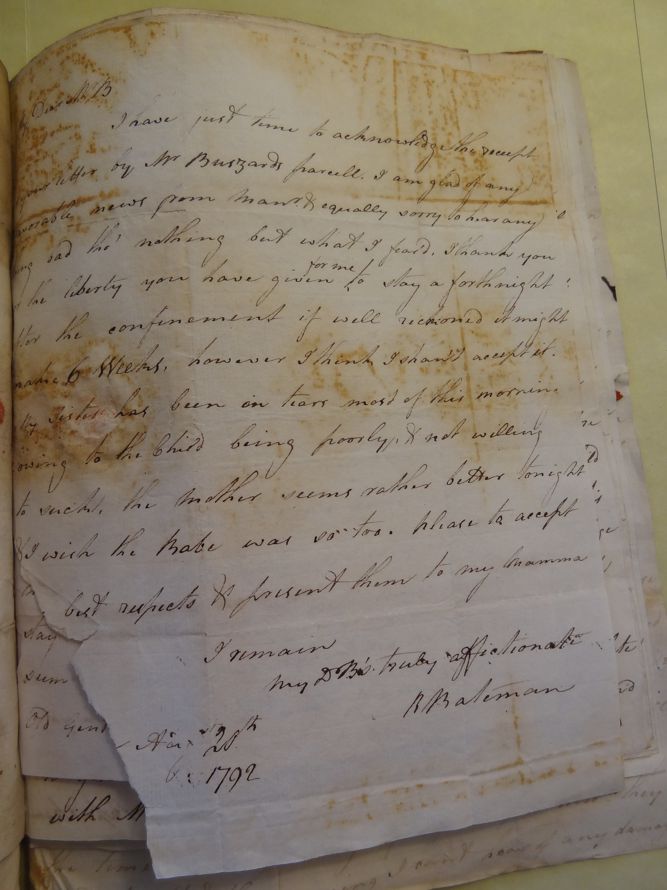 Dear Mr B
I have just time to acknowledge the receipt
your letter by Mr Buszards parcell. I am glad of any
favorable news from Manr & equally sorry to hear any
sad tho' nothing but what I feard. I thank you
the liberty you have given for me to stay a forthnight
the confinement if well reckoned it might
make 6 Weeks, however I think I shan't accept it.
My Sister has been in tears most of this morning
owing to the Child being poorly, & not willing
to suck, the Mother seems rather better tonight
& I wish the Babe was so too. please to accept
best respects & present them to my Mamma
I remain
my D B's truly affictionate
R Bateman
28th
1792
stay
sum
old Gent
with M